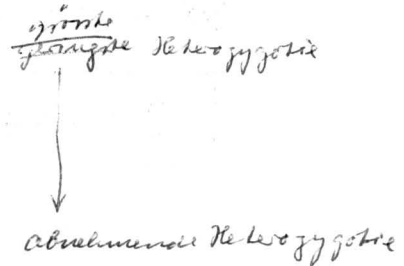 grösste
geringste Heterozygotie
abnehmende Heterozygotie